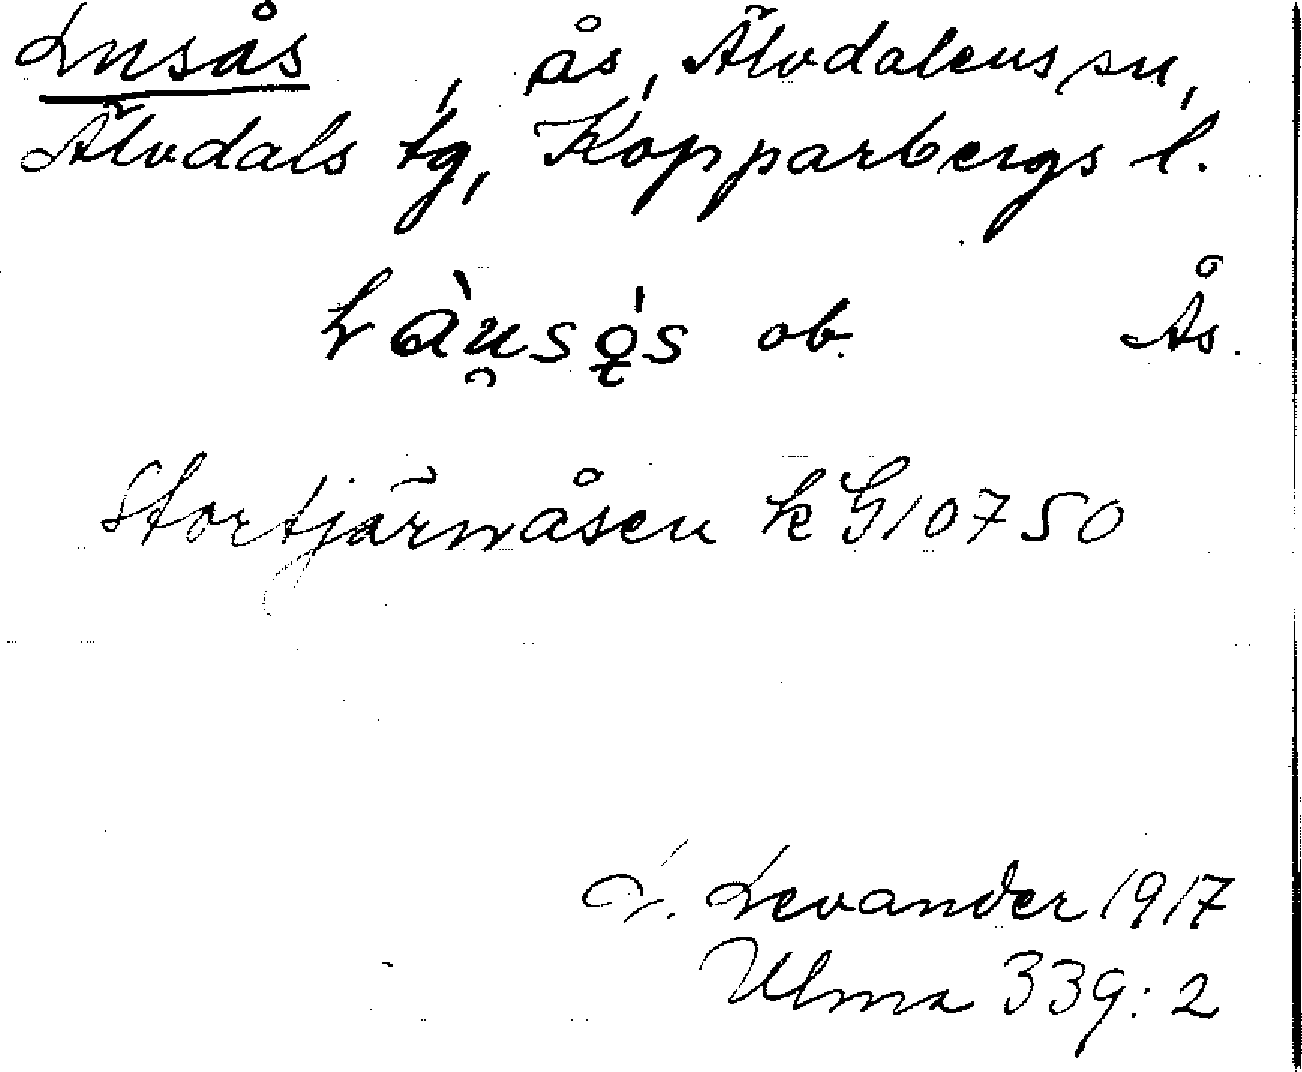 Lusås, ås, Älvdalens sn,
Älvdals tg, Kopparbergs l.
Làu̯sǫ́s ob. Ås.
Stortjärnåsen k G10750
L. Levander 1917
Ulma 339:2